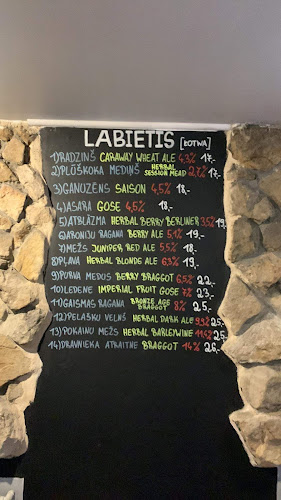 LABIETIS [ŁOTWA]
1) RADZIŅŠ CARAWAY WHEAT ALE 4,3% 17,-
2) PLŪŠKOKA MEDIŅŠ HERBAL SESSION MEAD 2,7% 17,-
3) GANUZĒNS SAISON 4,5% 18,-
4) ASARA GOSE 4,5% 18,-
5) ATBLĀZMA HERBAL BERRY BERLINER 3,5% 19,-
6) ARONIJU RAGANA BERRY ALE 5,1% 19,-
7) MEŽS JUNIPER RED ALE 5,5% 18,-
8) PĻAVA HERBAL BLONDE ALE 6,3% 19,-
9) PURVA MEDUS BERRY BRAGGOT 6,5% 22,-
10) LEDENE IMPERIAL FRUIT GOSE 7% 23,-
11) GAISMAS RAGANA BRONZE AGE BRAGGOT 8% 25,-
12) PELAŠĶU VELNS HERBAL DARK ALE 9,9% 25,-
13) POKAIŅU MEŽS HERBAL BARLEYWINE 11,5% 25,-
14) DRAVNIEKA ATRAITNE BRAGGOT 14% 26,-